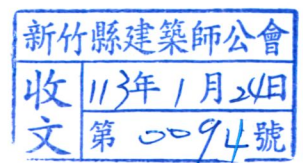 新竹縣建築師公會
收文
113年1月24日
第0094號